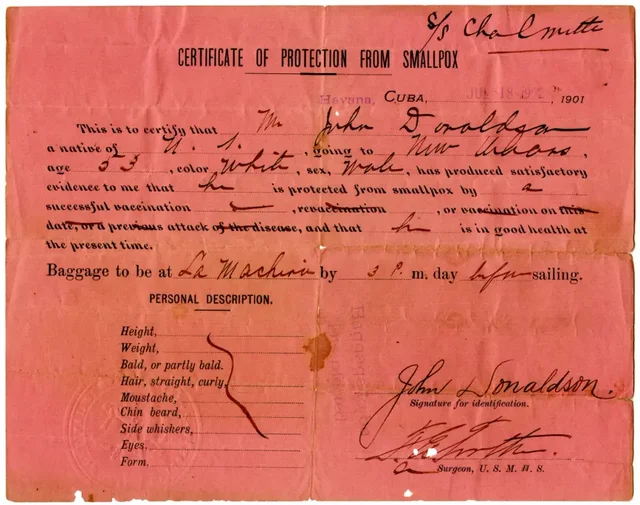 S/S Chalmette
CERTIFICATE OF PROTECTION FROM SMALLPOX
Havana, CUBA, 1901
This is to certify that Mr John Donaldson
a native of U. S. , going to New Orleans,
age 53 , color White , sex, Male, has produced satisfactory
evidence to me that he is protected from smallpox by a
successful vaccination , revaccination , or vaccination on this
date, or a previous attack of the disease, and that he is in good health at
the present time.
Baggage to be at La Machina by 3 P. m. day before sailing.
PERSONAL DESCRIPTION.
Height,
Weight,
Bald, or partly bald.
Hair, straight, curly,
Moustache,
Chin beard,
Side whiskers,
Eyes.
Form.
John Donaldson.
Signature for identification.
Surgeon, U. S. M. H. S.